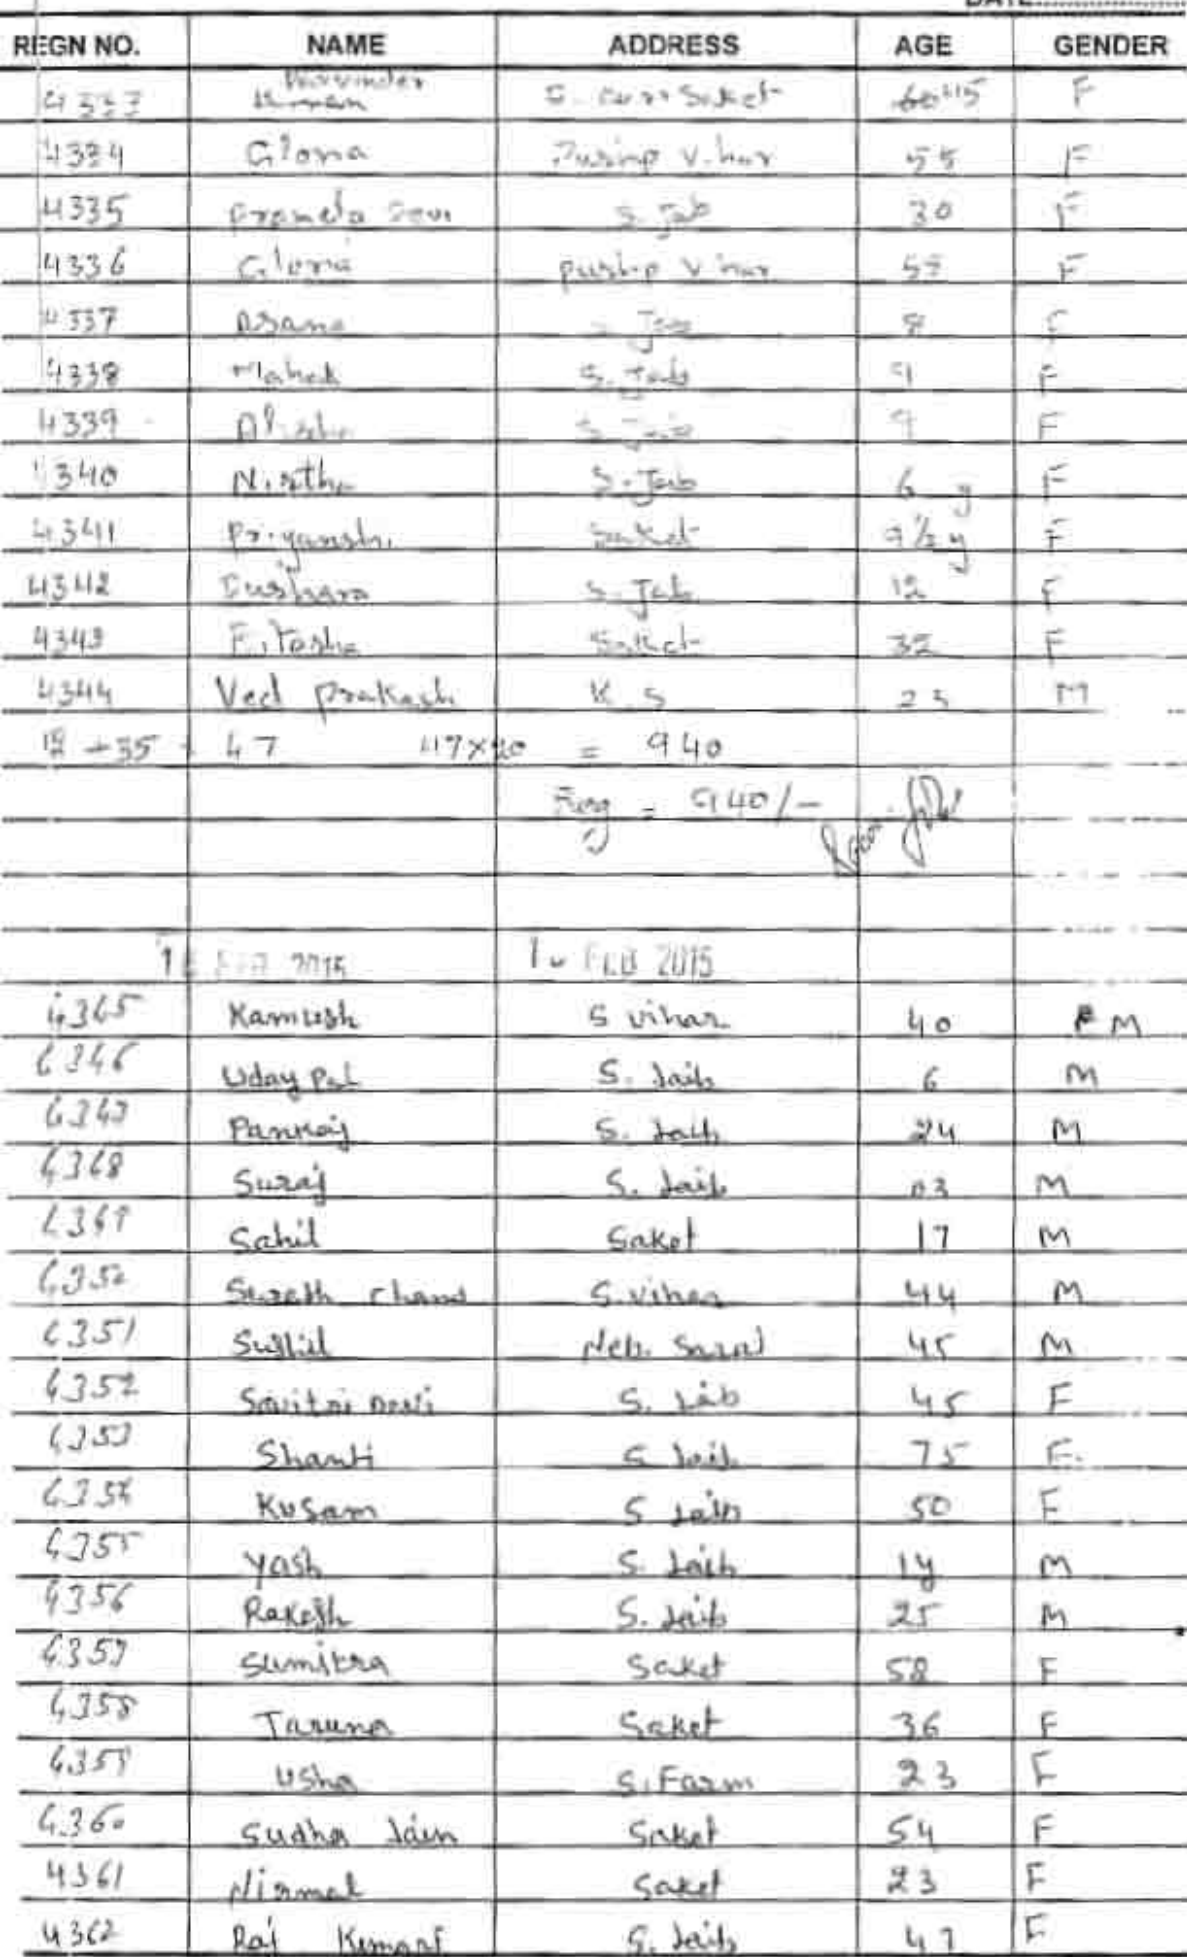 DATE
REGN NO. NAME ADDRESS AGE GENDER
4333 F
4334 Gloria Pushp Vihar 55 F
4335 Pramela Devi S. Jab 30 F
4336 Gloria pushp Vihar F
4337 8 F
4338 Mahek S. Jab 9 F
4339 9 F
4340 Nistha S. Jab 6 y F
4341 Priyanshi Saket 9 1/2 y F
4342 S. Jab 12 F
4343 Saket 32 F
4344 Ved prakash K. S M
12 + 35 47 47x20 = 940
= 940/-
FEB 2015 FEB 2015
4345 Kamlesh S vihar 40 M
4346 Uday Pal S. Jaib 6 M
4347 Pankaj S. Jaib 24 M
4348 Suraj S. Jaib 03 M
4349 Sahil Saket 17 M
4350 Suresh Chand S. vihar 44 M
4351 Sushil Neb. Sarai 45 M
4352 Savitri Devi S. Jaib 45 F
4353 Shanti S Jaib 75 F.
4354 Kusam S Jaib 50 F
4355 Yash S. Jaib 1y M
4356 Rakesh S. Jaib 25 M
4357 Sumitra Saket 58 F
4358 Taruna Saket 36 F
4359 Usha S. Farm 23 F
4360 Sudha Jain Saket 54 F
4361 Nirmal Saket 23 F
4362 Raj Kumari S. Jaib 47 F